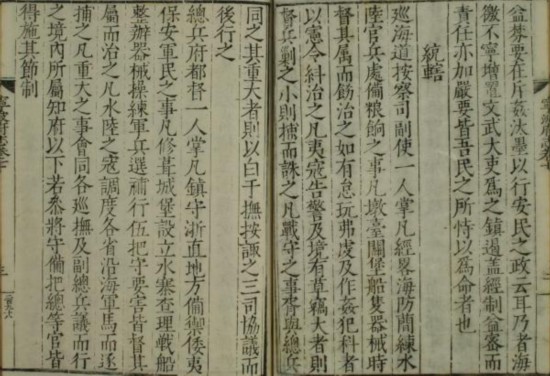 禁要在斥姦汰墨以行安民之政云耳乃者海
徼不寧增置文武大吏爲之鎮遏蓋經制益密而
責任亦加嚴要皆吾民之所恃以爲命者也
統轄
巡海道按察司副使一人掌凡經畧海防簡練水
陸官兵處備粮餉之事凡墩臺關堡船隻器械時
督其属而飭治之如有怠玩弗虔及作姦犯科者
以憲令糾治之凡夷寇告警及境有草竊大者則
督兵剿之小則捕而誅之凡戰守之事胥與總兵
同之其重大者則以白于撫按諏之三司協議而
後行之
總兵府都督一人掌凡鎮守浙直地方備禦倭夷
保安軍民之事凡修葺城堡設立水寨查理戰船
整辦器械操練軍兵選補行伍把守要害皆督其
屬而治之凡水陸之寇調度各省沿海軍馬而逐
捕之凡重大之事會同各巡撫及副總兵議而行
之境内所屬知府以下若叅將守備把總等官皆
得施其節制